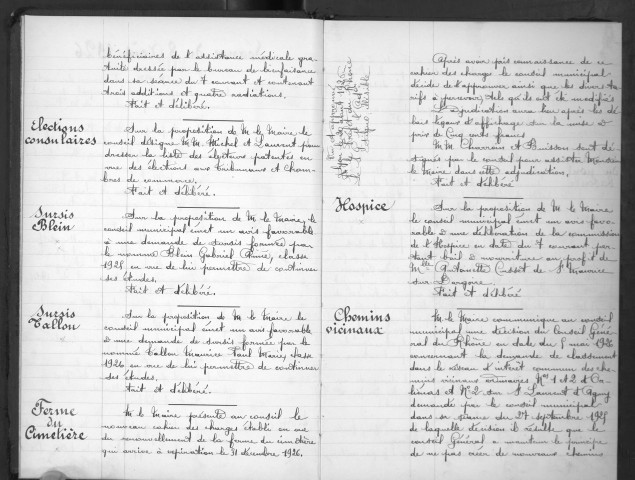 bénéficiaires de l'assistance médicale gra-
tuite dressée par le bureau de bienfaisance
dans sa séance du 7 courant et contenant
trois additions et quatre radiations.
Fait et délibéré.
Elections
consulaires
Sur la proposition de M. le Maire le
conseil désigne MM. Michel et Laurent pour
dresser la liste des électeurs patentés en
vue des élections aux tribunaux et Cham-
bres de commerce.
Fait et délibéré.
Sursis
Blein
Sur la proposition de M. le Maire, le
conseil municipal émet un avis favorable
à une demande de sursis formée par
le nommé Blein Gabriel Aimé, classe
1925 en vue de lui permettre de continuer
ses études.
Fait et délibéré.
Sursis
Tallon
Sur la proposition de M. le Maire le
conseil municipal émet un avis favorable
à une demande de sursis formée par le
nommé Tallon Maurice Paul Marie, classe
1926 en vue de lui permettre de continuer
ses études.
Fait et délibéré.
Ferme
du
Cimetière
M. le Maire présente au conseil le
nouveau cahier des charges établi en vue
du renouvellement de la ferme du cimetière
qui arrive à expiration le 31 décembre 1926.
Après avoir pris connaissance de ce
cahier des charges le conseil municipal
décide de l'approuver ainsi que les divers ta-
rifs à percevoir, tels qu'ils ont été modifiés
L'adjudication aura lieu après les dé-
lais légaux d'affichage sur la mise à
prix de Cinq cents francs
MM. Charvon et Buisson sont dé-
signés par le conseil pour assister Monsieur
le Maire dans cette adjudication.
Fait et délibéré
Hospice
Sur la proposition de M. le Maire
le conseil municipal émet un avis favo-
rable à une délibération de la commission
de l'Hospice en date du 7 courant por-
tant bail à nourriture au profit de
Mlle Antoinette Cusset de St Maurice
sur Dargoire.
Fait et délibéré
Chemins
vicinaux
M. le Maire communique au conseil
municipal une décision du Conseil Géné-
ral du Rhône en date du 5 mai 1926
concernant la demande de classement
dans le réseau d'intérêt commun des che-
mins vicinaux ordinaires Nos 1 et 2 d'Or-
liénas et No 2 sur St Laurent d'Agny
demandé par le conseil municipal
dans sa séance du 27 septembre 1925
de laquelle décision il résulte que le
conseil Général a maintenu le principe
de ne pas créer de nouveaux chemins